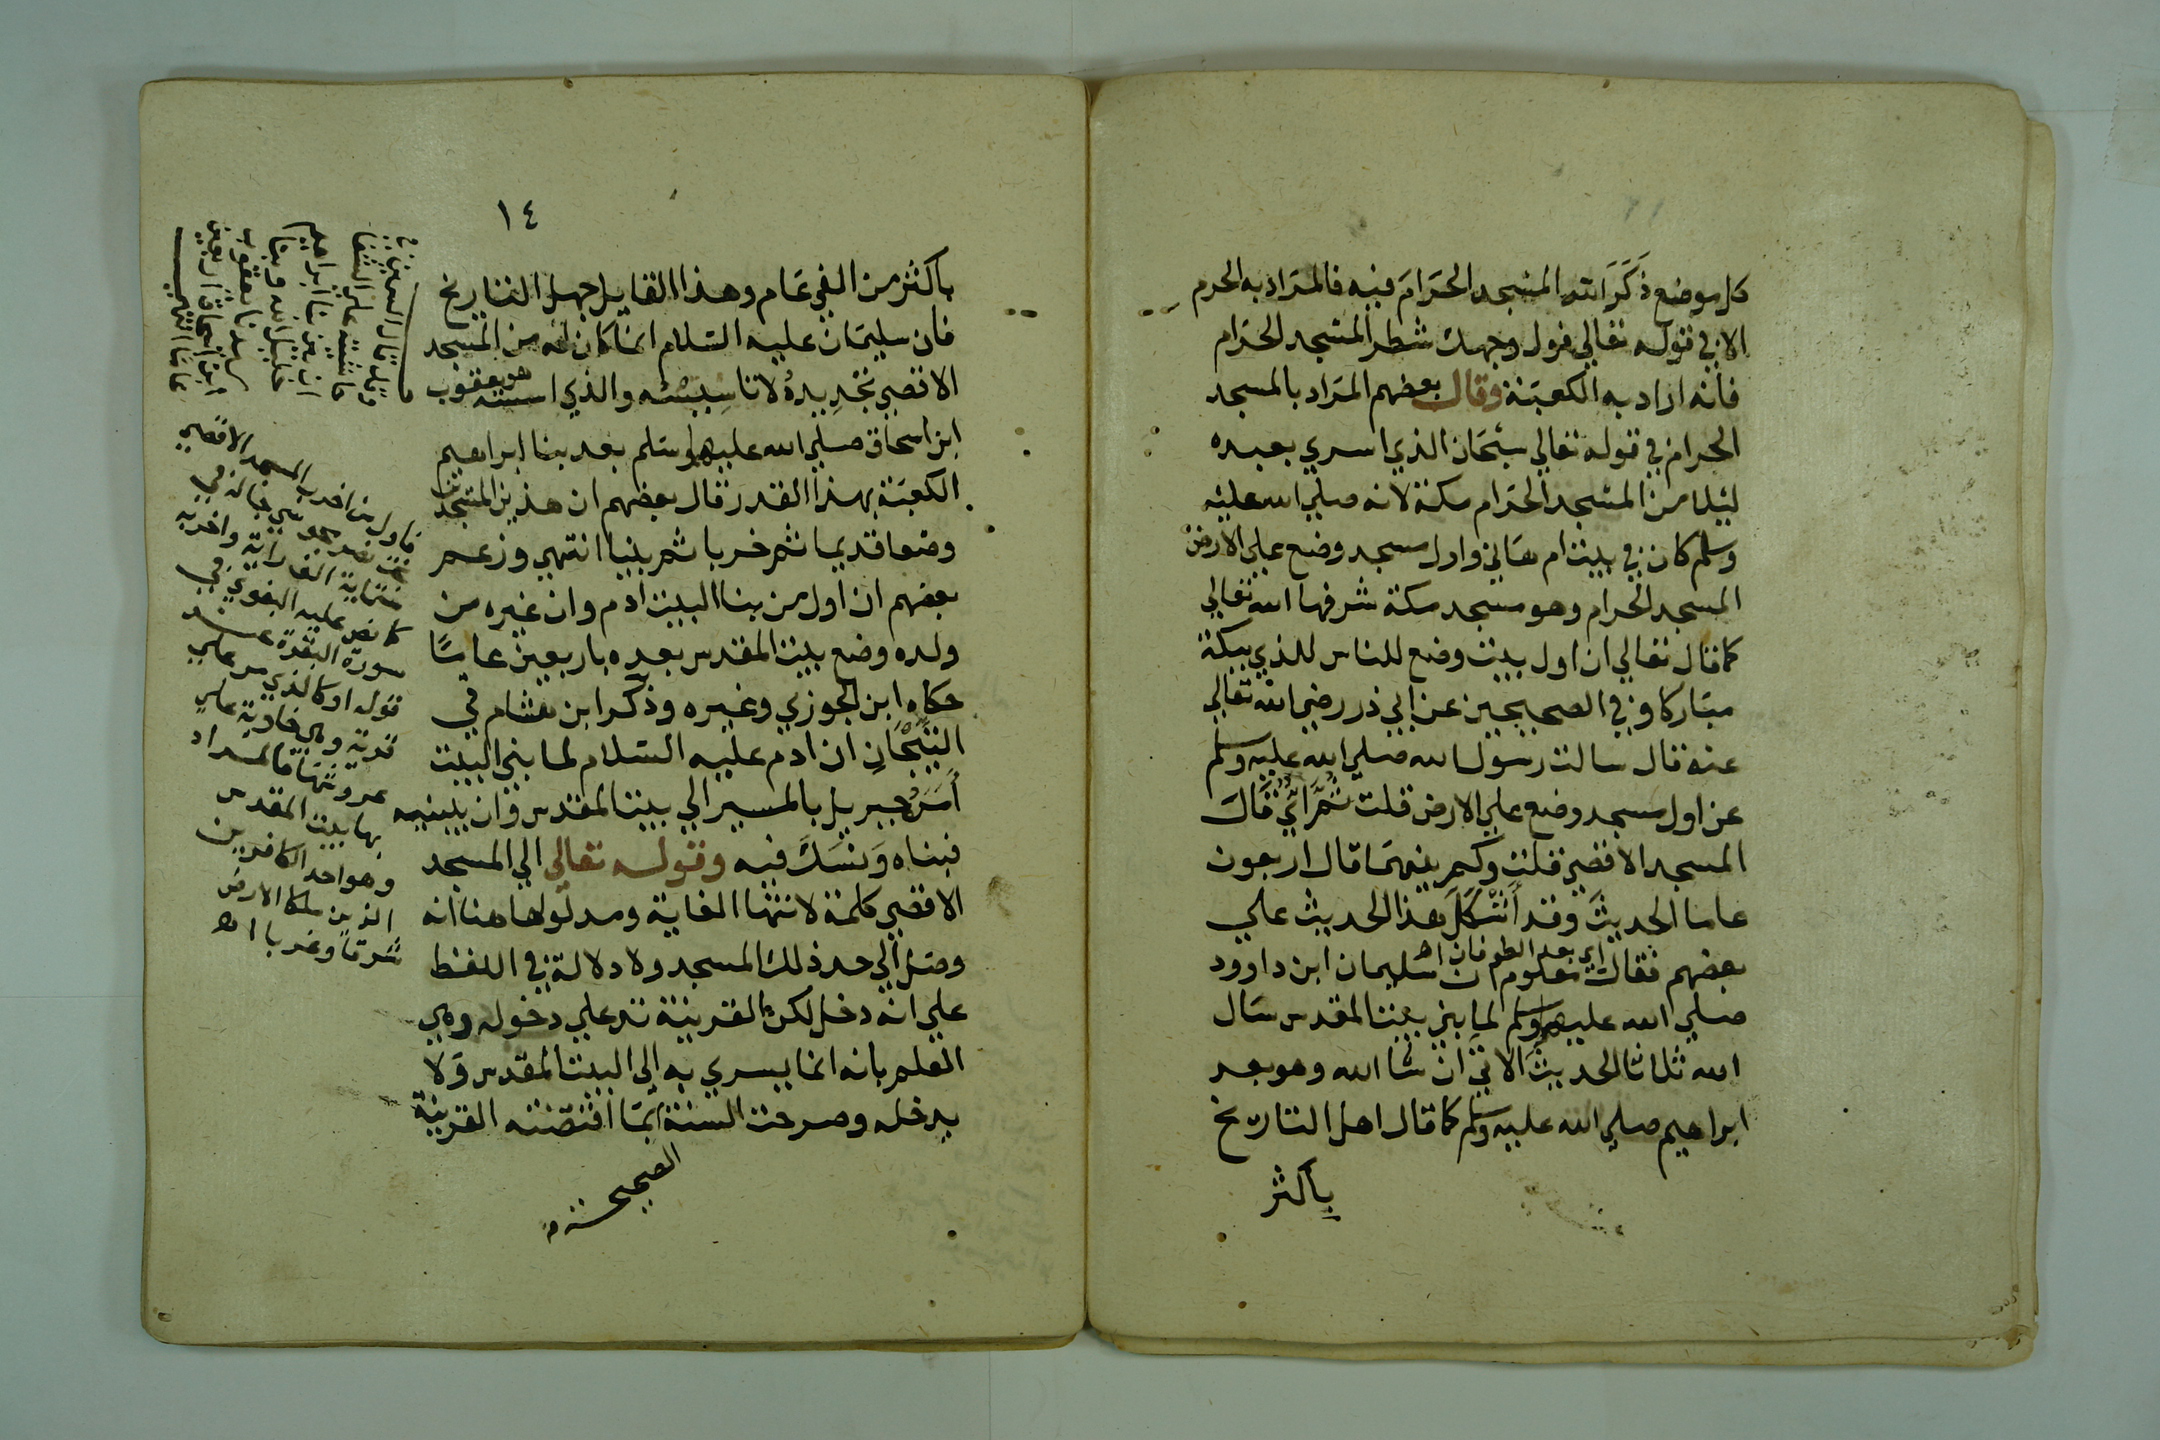 كل موضع ذَكَرَ الله المسجد الحَرَامَ فيه فالمَرَاد به الحرم
الا في قوله تعالى فول وجهك شطر المسْجد الحَرَام
فانه اراد به الكعبَة وقال بعضهم المرَاد بالمسجد
الحرام في قوله تعالي سبْحَان الذي اسري بعبده
ليْلا من المسْجد الحَرام مكة لانه صلي الله عليْه
وسلم كان في بيت ام هَاني واول مسجد وضع علي الارض
المسجد الحرام وهو مسجد مكة شرفها الله تعالي
كما قال تعالي ان اول بيت وضع للناس للذي ببكة
مبَاركا وفي الصحيحين عن ابي ذر رضي الله تعالي
عنه قال سالت رسول الله صلي الله عليه وسلم
عن اول مسجد وضع علي الارض قلت ثُمَّ ايُّ قَالَ
المسجد الاقصي قلت وكم بينهمَا قال اربعون
عاما الحديثَ وقد أشْكَلَ هذا الحديث علي
بعضهم فقال معلوم ان سليمان ابن داوود
اي بعد الطوفان اهـ
صلي الله عليهم وسلم لما بني بيت المقدس سَال
الله ثلاثا الحديثَ الاتي ان شا الله وهو بعد
ابراهيم صلي الله عليه وسلم كما قال اهل التاريخ
باكثر
١٤
باكثر من الفي عَام وهذا القايل جهل التاريخ
فان سليمَان عليه السَلام انما كان له من المسْجد
الاقصي تجْدِيدهُ لا تاسِيسُه والذي اسسه هو يعقوب
ابن اسحاق صلي الله عليهما وسَلم بعد بنا ابراهيم
الكعبَة بهذا القدر وقال بعضهم ان هذين المسْجدين
وضعا قديما ثم خربا ثم بنيا انتهي وزعم
بعضهم ان اول من بنا البيت ادم وان غيره من
ولده وضع بيت المقدس بعده باربعين عامًا
حكاه ابن الجوزي وغيره وذكر ابن هشام في
التيْجَانِ ان ادم عليه السَلام لما بني البيت
أمَرَهُ جبريل بالمسير الي بيت المقدس وان يبنيه
فبناه وَنسَكَ فيه وقوله تعالي الي المسجد
الاقصي كلمة لانتها الغاية ومدلولها هنا انه
وصل الي حد ذلك المسجد ولا دلالة في اللفظ
علي انه دخل لكن القرينة تدل علي دخوله وهي
العلم بانه انما يسري به الي البيت المقدس وَلا
يدخله وصرحت السنة بمَا اقتضته القرينة
الصحيحة
فاول من اخرب المسجد الاقصي
بخت نصر
كما نص عليه البغوي في
سورة البقرة عند
قوله او كالذي مر علي
قرية وهي خاوية علي
عروشها فالمراد
بها بيت المقدس
وهو احد الكافرين
الذين ملكا الارض
شرقا وغربا اهـ